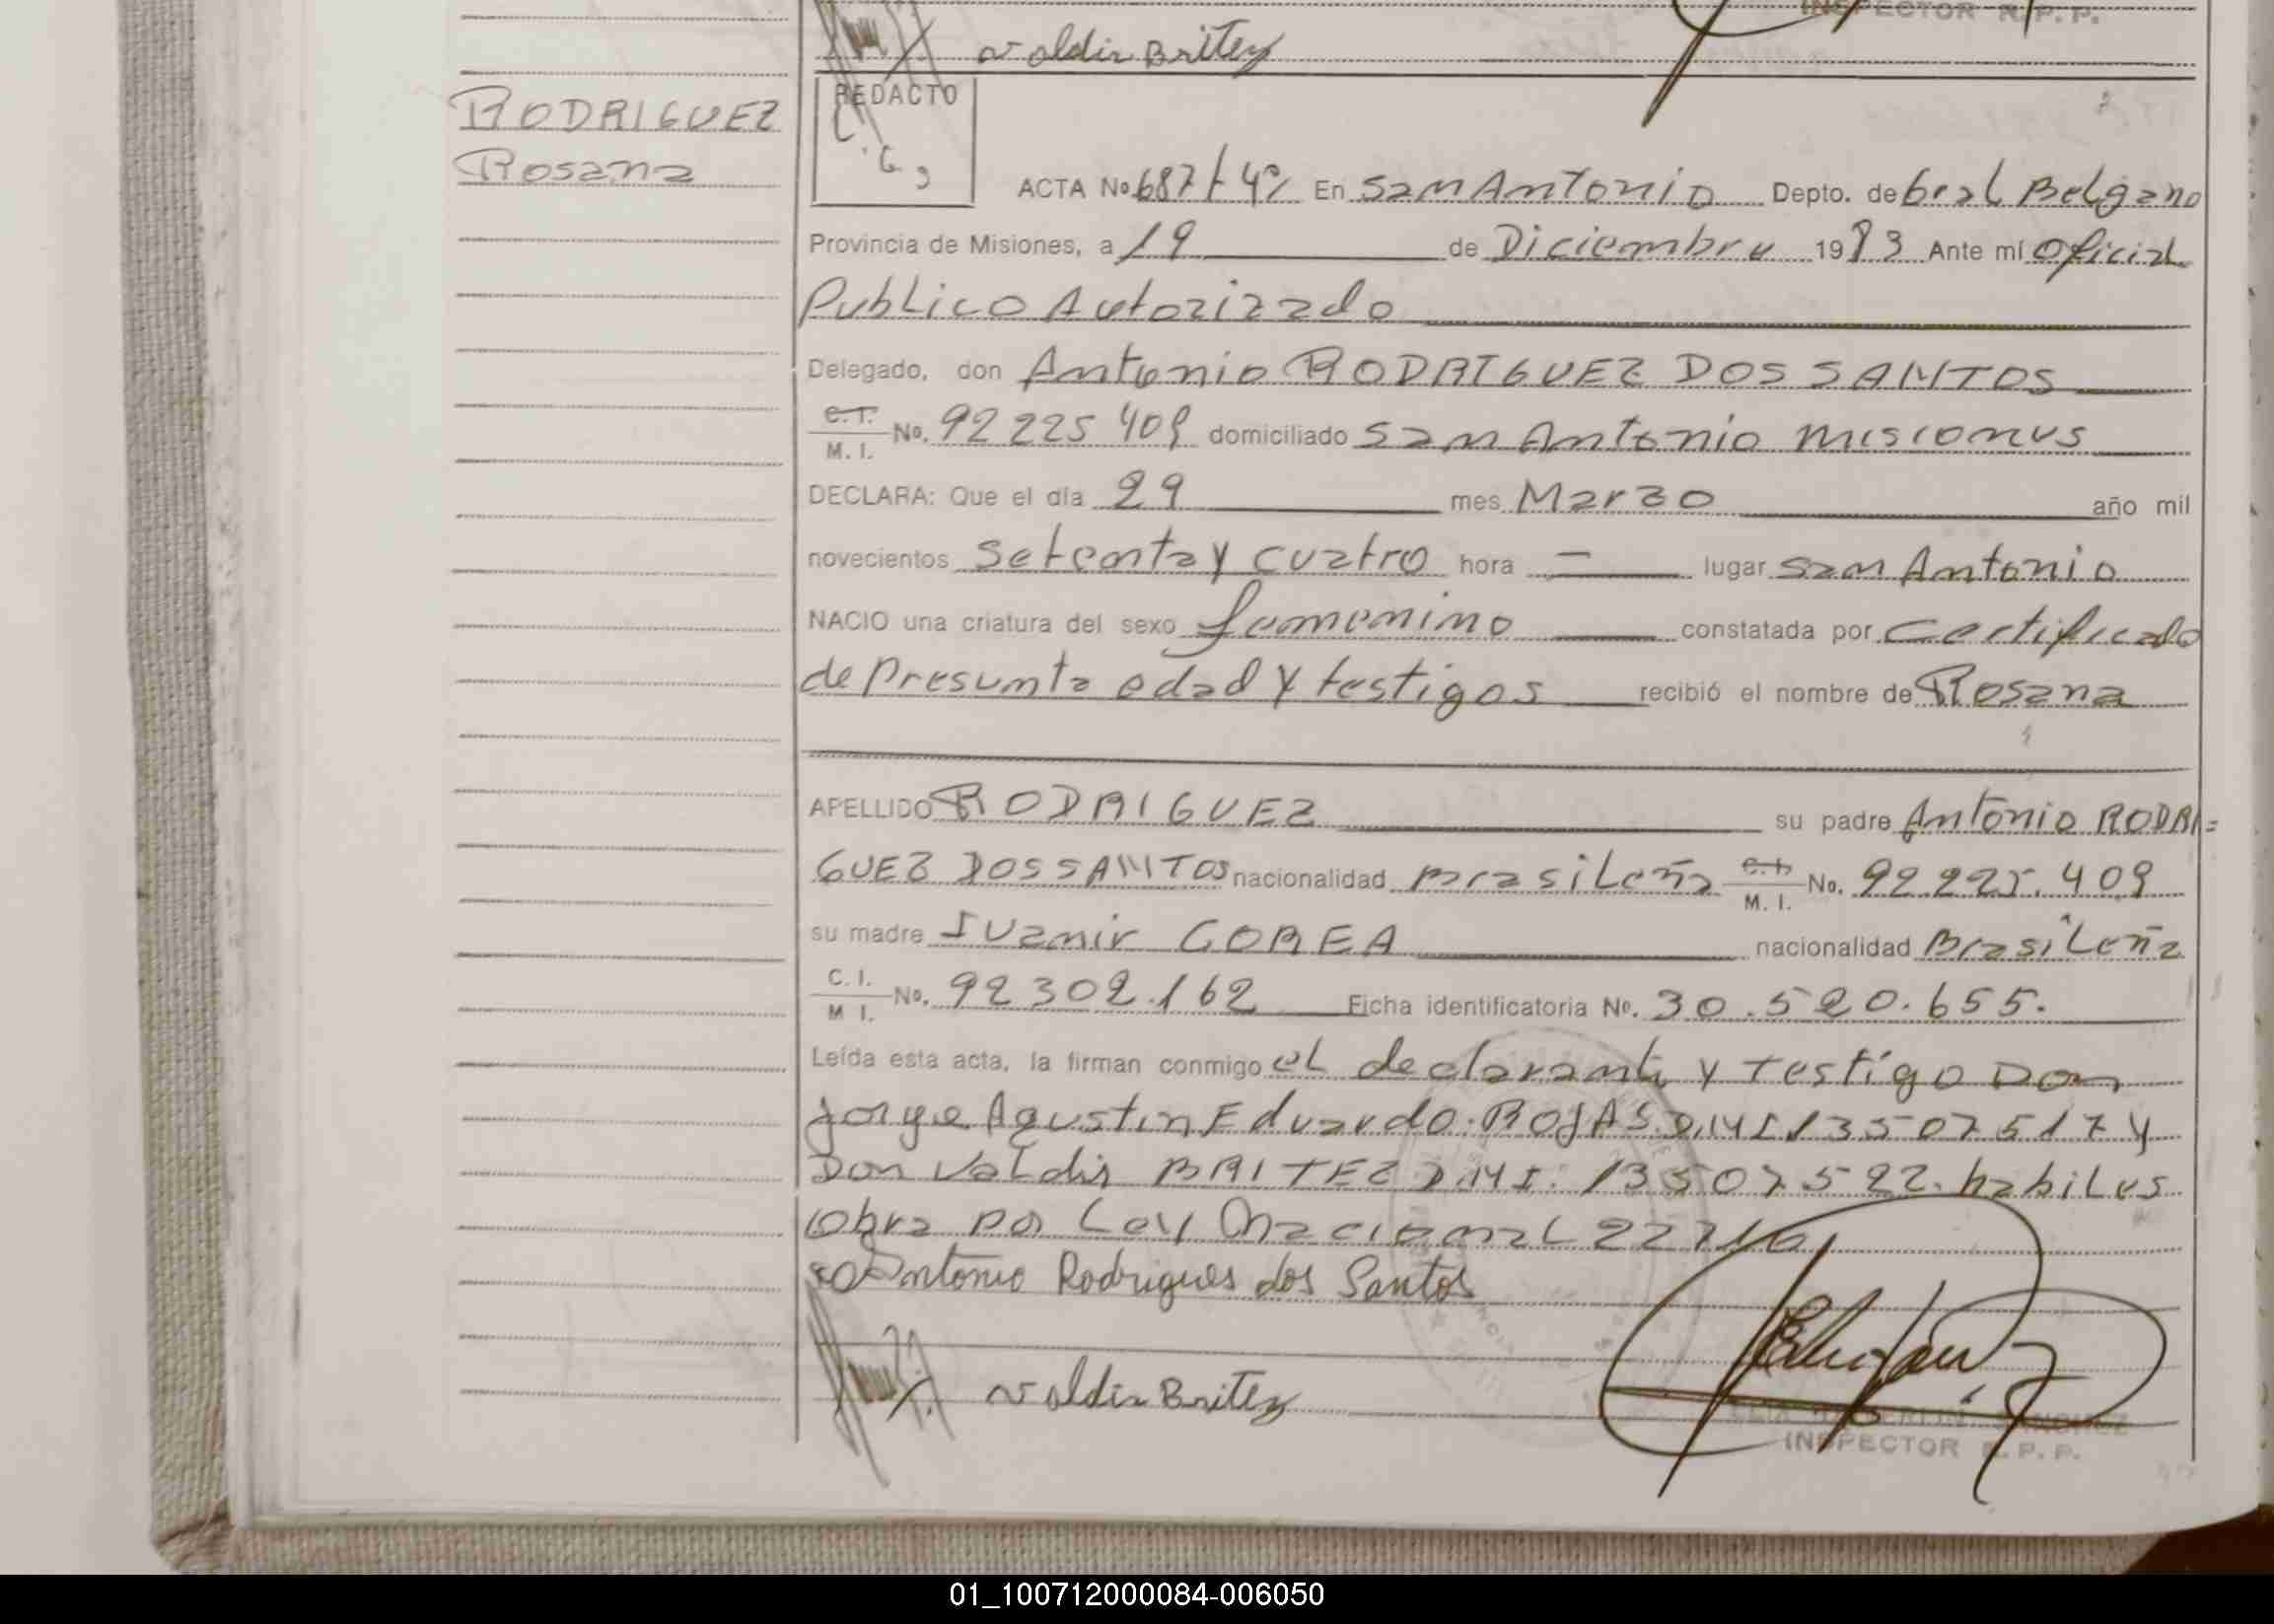 INSPECTOR R.P.P.
Valdir Britez
RODRIGUEZ
Rosana
REDACTO
ACTA No 687 t 4º En San Antonio Depto. de Gral Belgano
Provincia de Misiones, a 19 de Diciembre 1983 Ante mí Oficial
Publico Autorizado
Delegado, don Antonio RODRIGUEZ DOS SANTOS
C.I. M.I. No. 92 225 409 domiciliado San Antonio Misiones
DECLARA: Que el día 29 mes Marzo año mil
novecientos Setenta y cuatro hora — lugar San Antonio
NACIO una criatura del sexo femenino constatada por certificado
de Presunta edad y testigos recibió el nombre de Rosana
APELLIDO RODRIGUEZ su padre Antonio RODRI=
GUEZ DOS SANTOS nacionalidad Brasileña C.I. M.I. No. 92.225.409
su madre COREA nacionalidad Brasileña
C.I. M I. No. 92 302.162 Ficha identificatoria No. 30.520.655.
Leída esta acta, la firman conmigo el declarante y testigo Don
Jorge Agustin Eduardo ROJAS D.M.I 13507517 y
Don Valdir BRITEZ D.M.I. 13507522. habiles
Obra por Ley Nacional
Antonio Rodrigues dos Santos
Valdir Britez
INSPECTOR R.P.P.
01_100712000084-006050